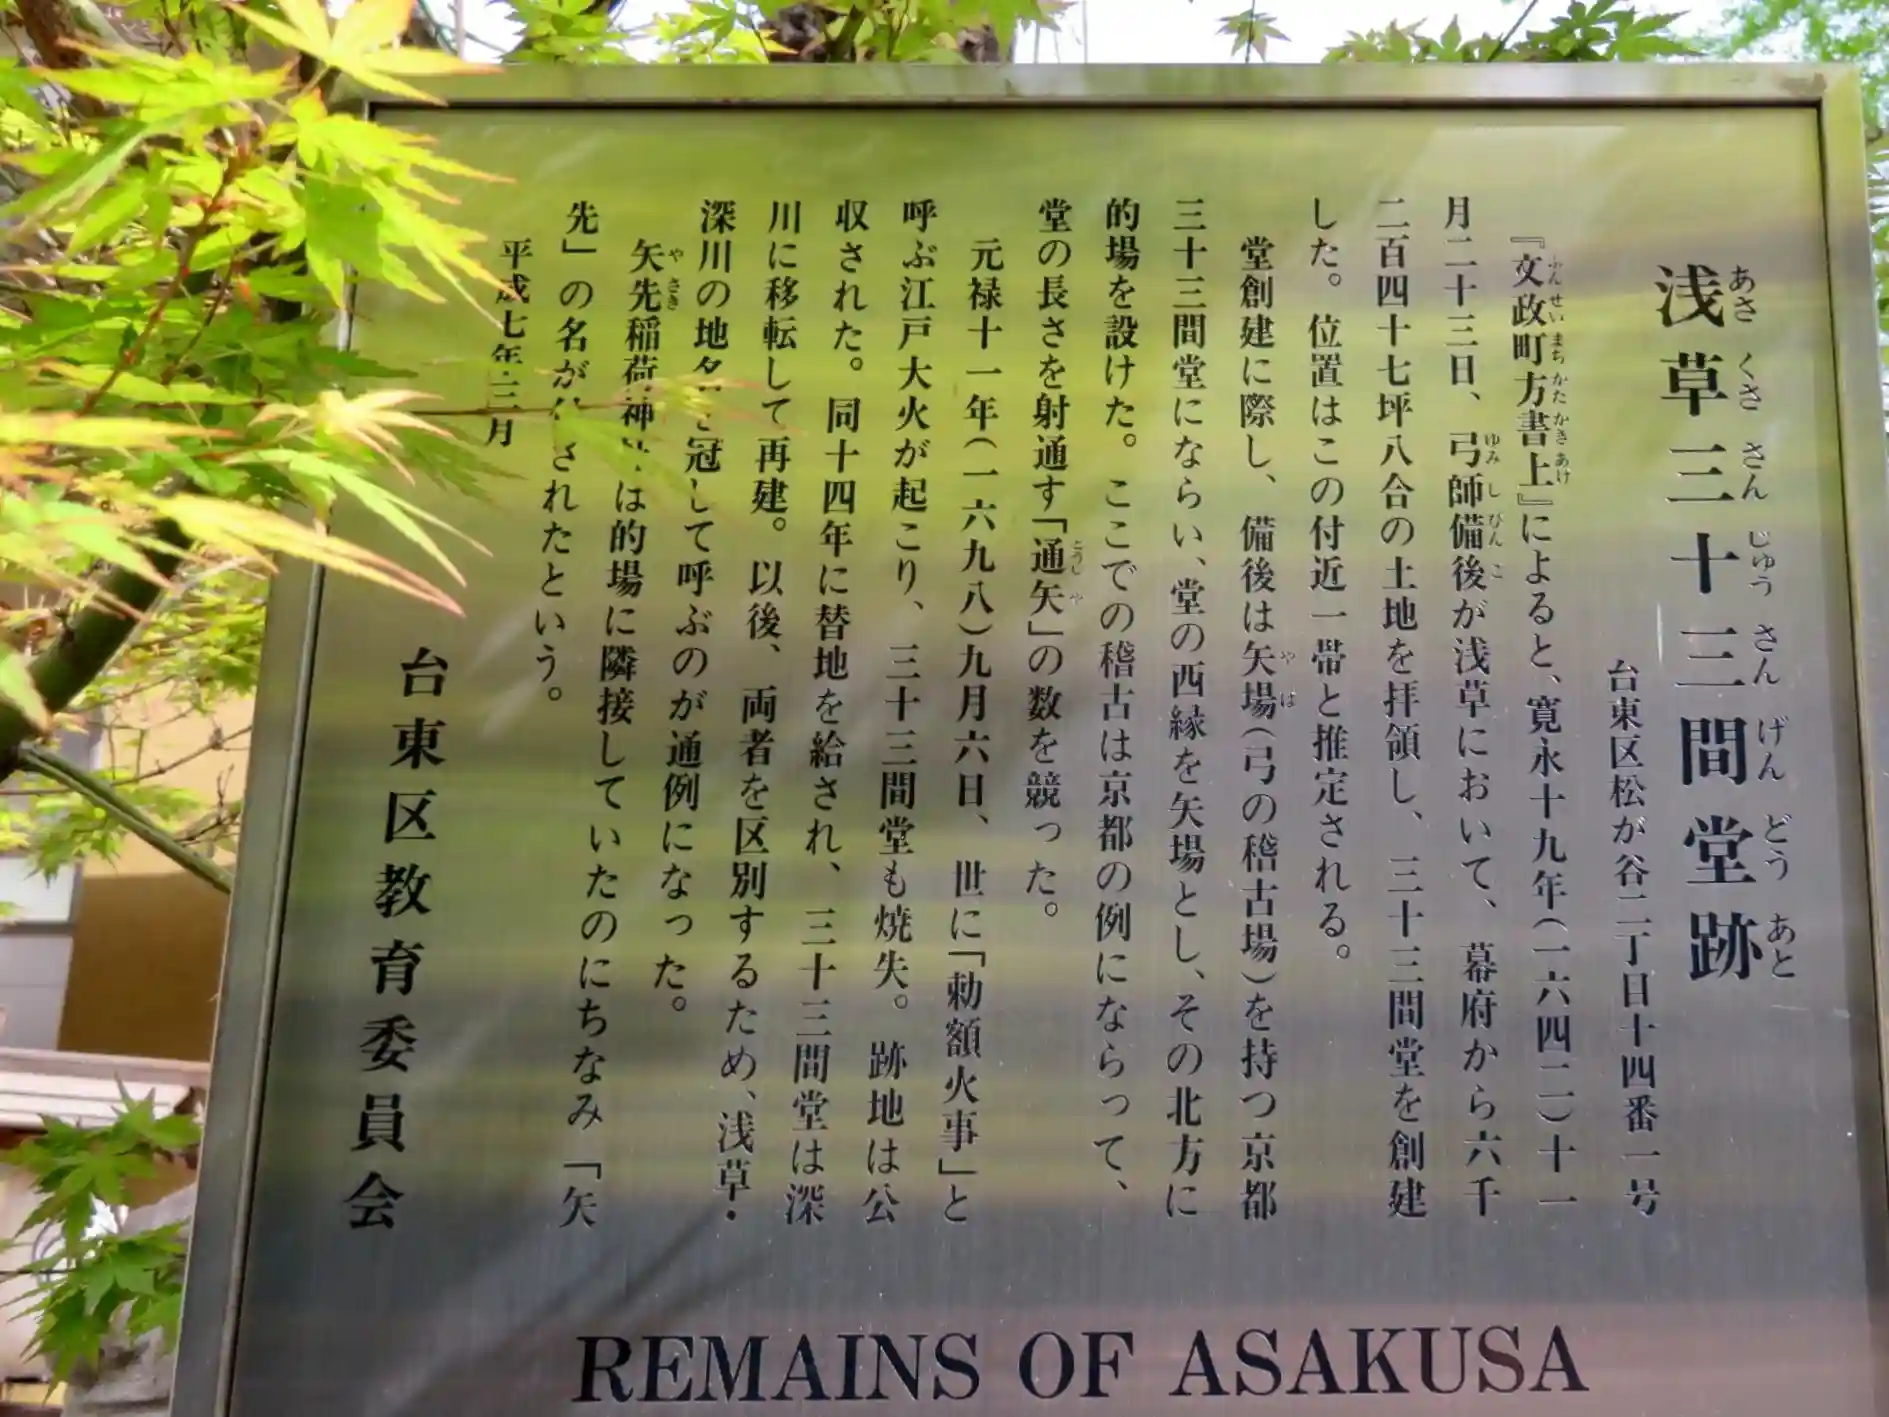 浅草三十三間堂跡
あさくささんじゅうさんげんどうあと
台東区松が谷二丁目十四番一号
『文政町方書上』によると、寛永十九年(一六四二)十一
ぶんせいまちかたかきあけ
月二十三日、弓師備後が浅草において、幕府から六千
ゆみしびんご
二百四十七坪八合の土地を拝領し、三十三間堂を創建
した。位置はこの付近一帯と推定される。
堂創建に際し、備後は矢場(弓の稽古場)を持つ京都
やば
三十三間堂にならい、堂の西縁を矢場とし、その北方に
的場を設けた。ここでの稽古は京都の例にならって、
堂の長さを射通す「通矢」の数を競った。
とうしや
元禄十一年(一六九八)九月六日、世に「勅額火事」と
呼ぶ江戸大火が起こり、三十三間堂も焼失。跡地は公
収された。同十四年に替地を給され、三十三間堂は深
川に移転して再建。以後、両者を区別するため、浅草・
深川の地名を冠して呼ぶのが通例になった。
矢先稲荷神は的場に隣接していたのにちなみ「矢
やさき
先」の名がされたという。
平成七年三月
台東区教育委員会
REMAINS OF ASAKUSA